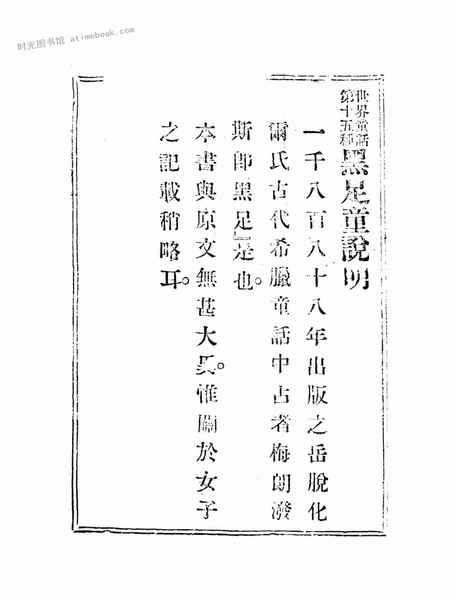 时光图书馆 atimebook.com
世界童話
第十五種
黑足童說明
一千八百八十八年出版之岳脫化
爾氏古代希臘童話中占者梅朗潑
斯郎黑足是也。
本書與原文無甚大異。惟關於女子
之記載稍略耳。